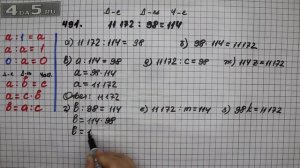 4DA5.RU
Д-е Д-ль Ч-е
491. 11 172 : 98 = 114
a : 1 = a
a : a = 1
0 : a = 0
a) 11 172 : 114 = 98
б) 98 · 114 = 11 172
в) a : 114 = 98
a = 98 · 114
a = 11 172
Ответ: 11 172
г) 11 172 : c = 98
ж) 114 z = 11 172
a : b = c
a = c · b
b = a : c
b : 98 = 114
b = 114 · 98
b = 1
е) 11 172 : m = 114
з) 98 k = 11 172